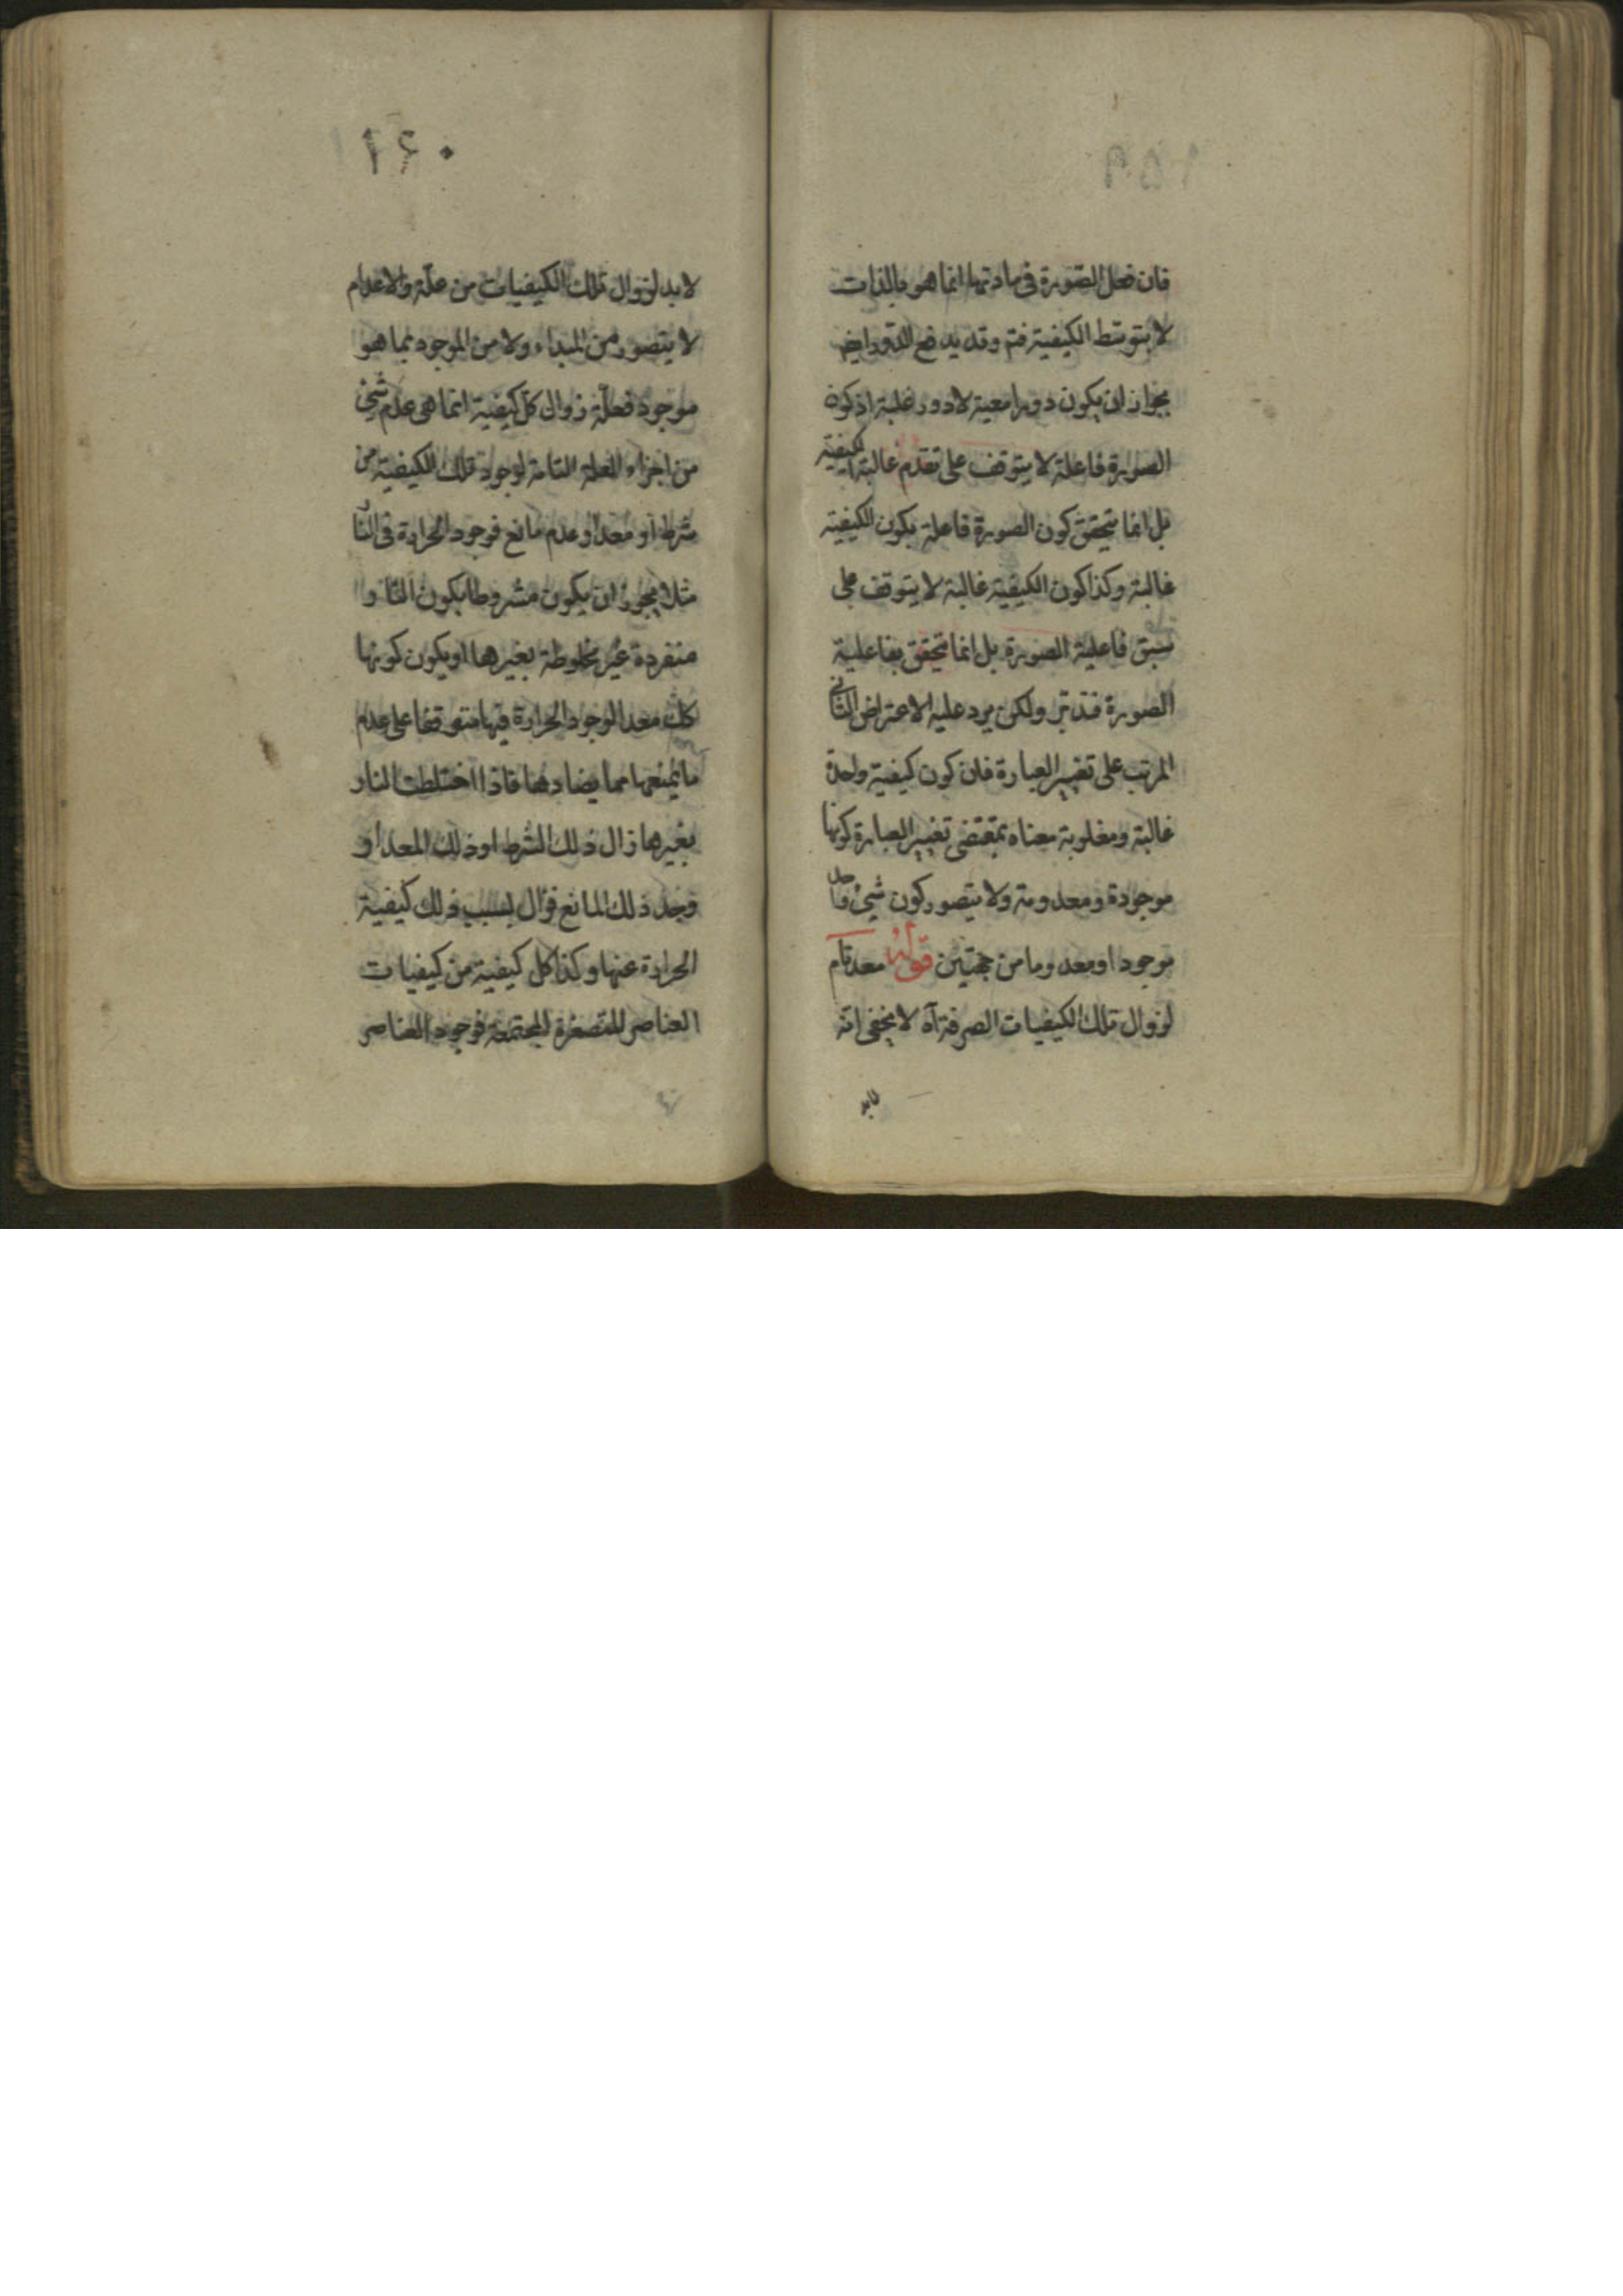 ١٥٩
فان فعل الصّورة فى مادتها انما هو بالذات
لا بتوسّط الكيفية فتم وقد يدفع الدّور ايضا
بجواز ان يكون دورا معية لا دور علية اذ كون
الصورة فاعلة لا يتوقف على تقدم غالبة الكيفية
بل انما يتحقق كون الصورة فاعلة بكون الكيفية
غالبة وكذا كون الكيفية غالبة لا يتوقف على
سبق فاعلية الصورة بل انما تحقق بفاعلية
الصورة فتدبّر ولكن يرد عليه الاعتراض الثانى
المرتب على تغيير العبارة فان كون كيفية واحدة
غالبة ومغلوبة معناه بمقتضى تغيير العبارة كونها
موجودة ومعدومة ولا يتصور كون شيئ واحد
موجودا ومعدوما من جهتين قوله معد تام
لزوال تلك الكيفيات الصرفة آه لا يخفى انه
لابد
١٦٠
لا بد لزوال تلك الكيفيات من علّة والاعدام
لا يتصور من المبداء ولا من الموجود بما هو
موجود فعلّة زوال كلّ كيفية انما هى عدم شيئ
من اجزاء العلة التامة لوجود تلك الكيفية من
شرط او معد او عدم مانع فوجود الحرارة فى النّار
مثلا يجوز ان يكون مشروطا بكون النّار
منفردة غير مخلوطة بغيرها او يكون كونها
كك معدا لوجود الحرارة فيها متوقفا على عدم
ما يمنعها مما يضادها فاذا اختلطت النار
بغيرها زال ذلك الشرط او ذلك المعد او
وجد ذلك المانع فزال بسبب ذلك كيفية
الحرارة عنها وكذا كل كيفية من كيفيات
العناصر المتصغرة المجتمعة فوجود العناصر